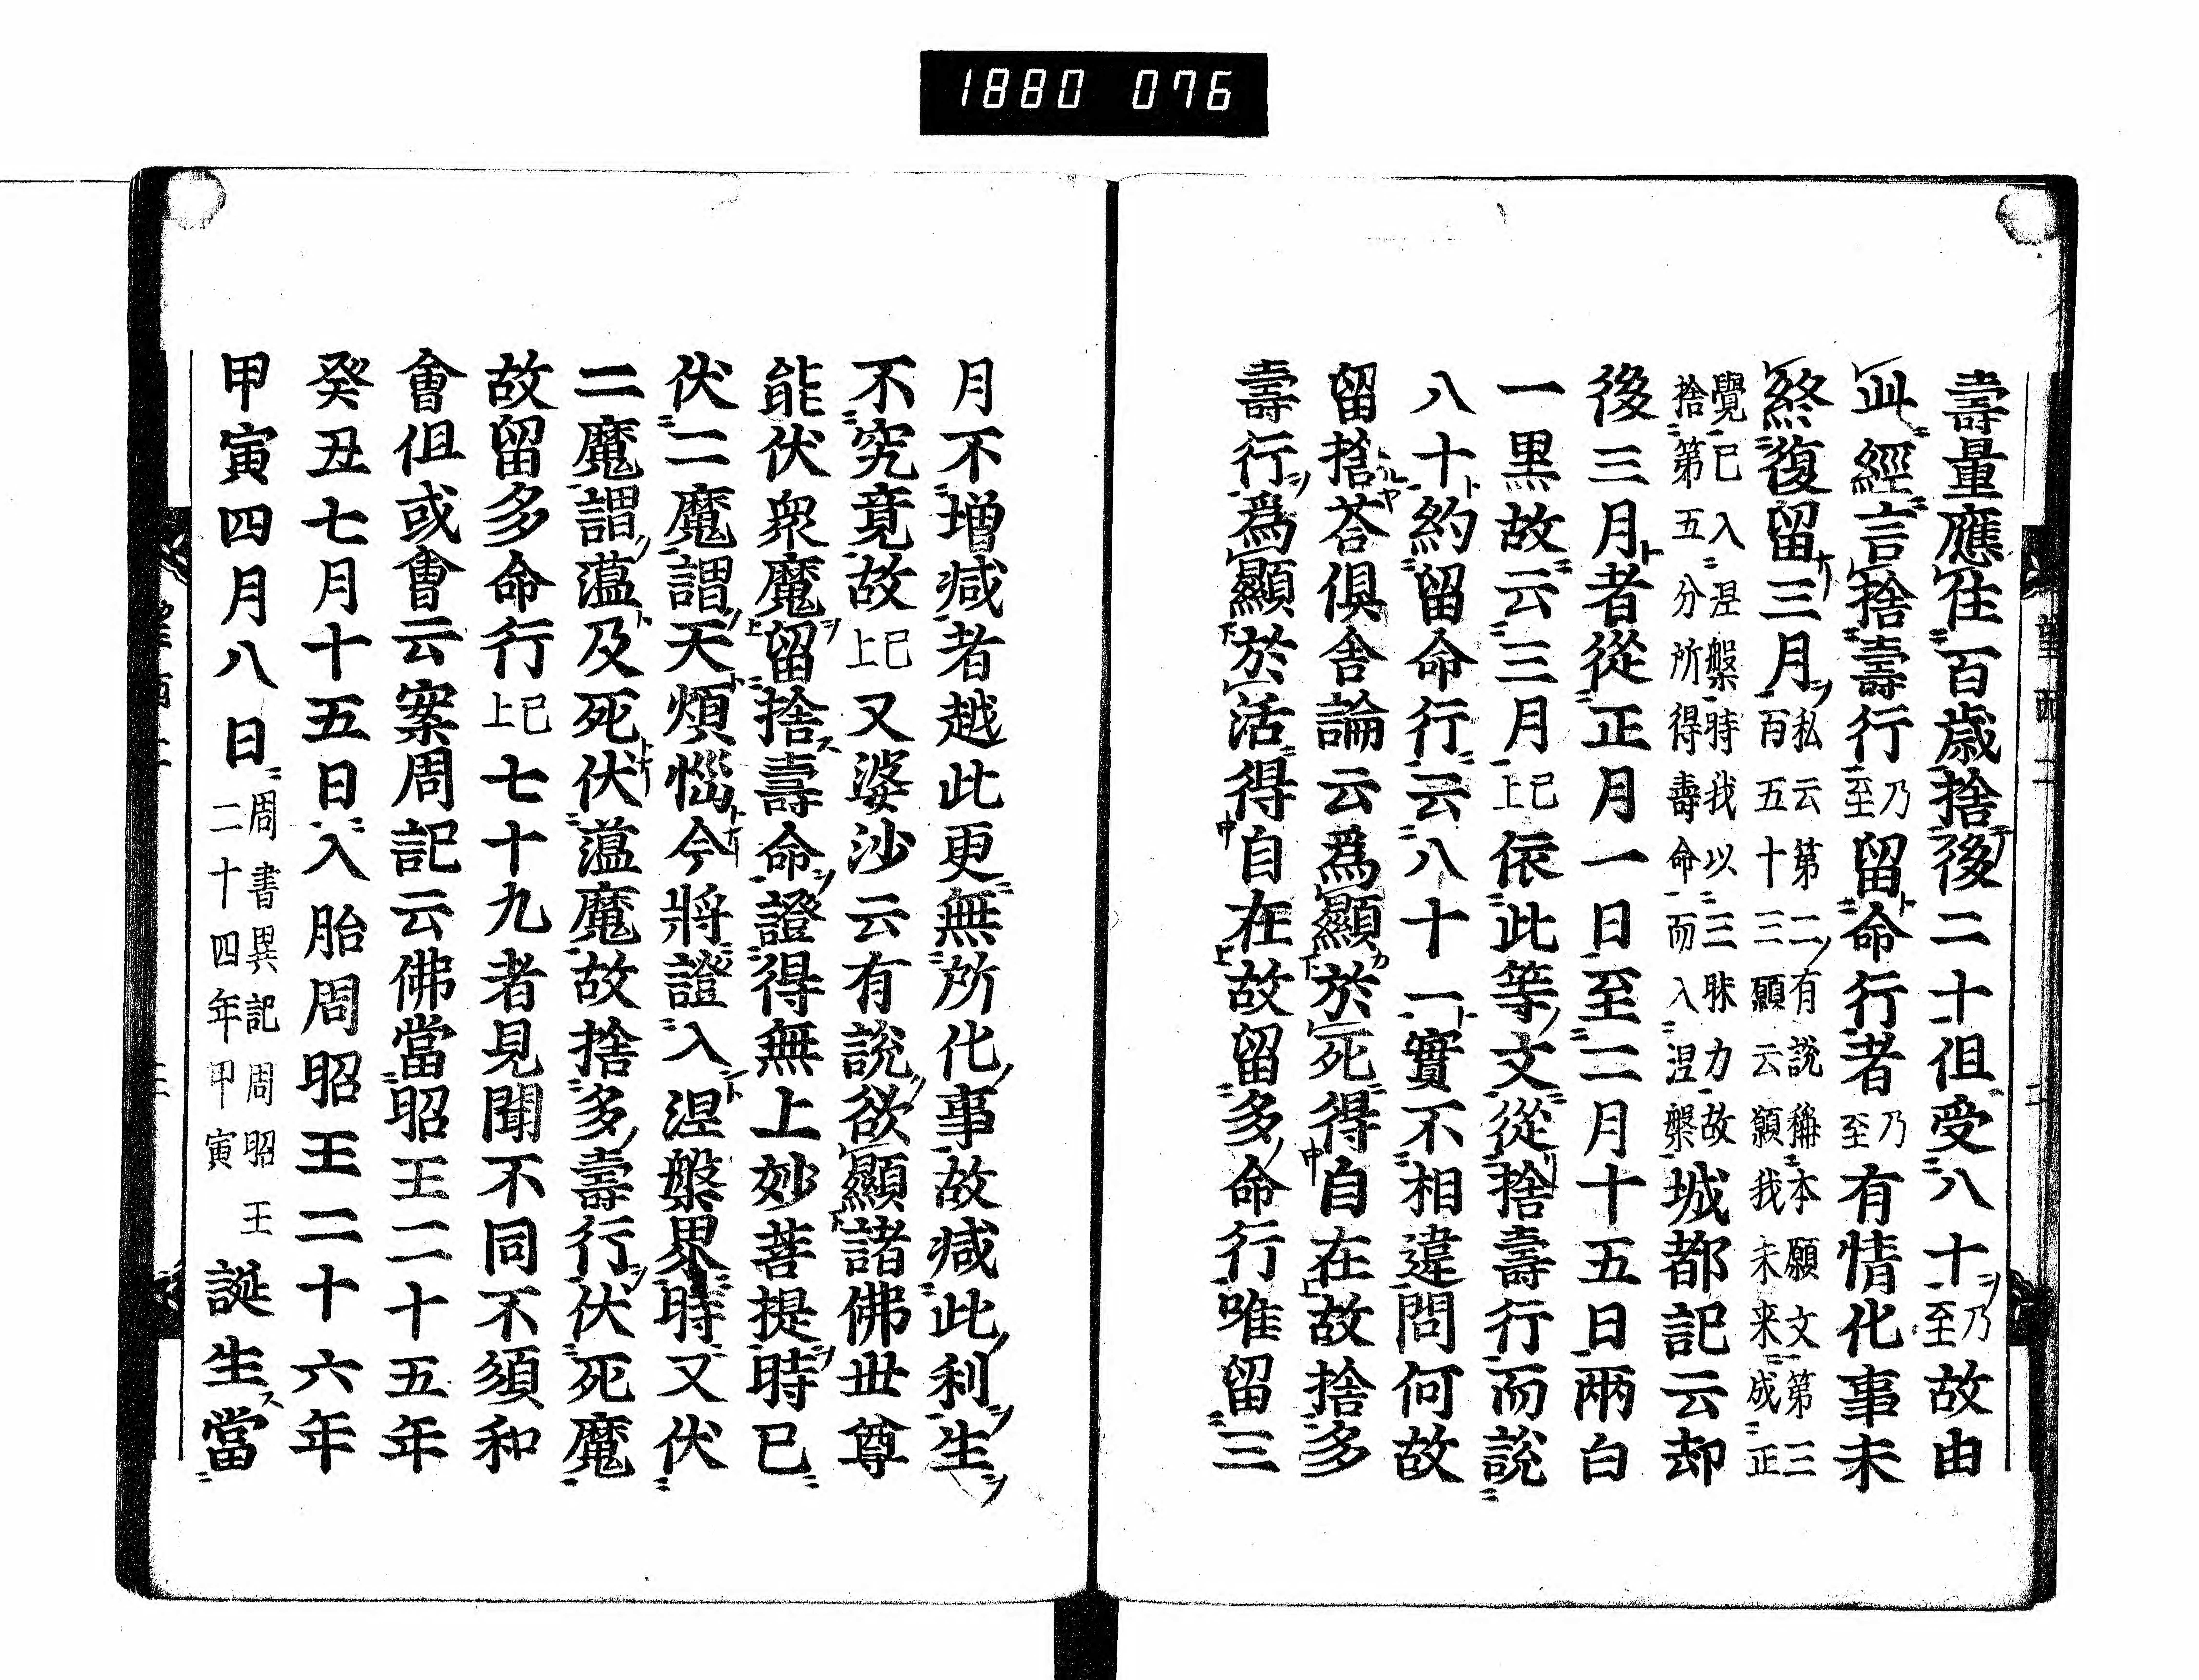 1880 076
壽量應住百歳捨後二十但受八十乃至故由
此經言捨壽行乃至留命行者乃至有情化事未
終復留三月私云第二有説稱本願文第三百五十三願云願我未来成正
覺已入涅槃時我以三昧力故捨第五分所得壽命而入涅槃城都記云却
後三月者從正月一日至二月十五日兩白
一黒故云三月已上依此等文從捨壽行而説
八十約留命行云八十一實不相違問何故
留捨荅倶舍論云爲顯於死得自在故捨多
壽行爲顯於活得自在故留多命行唯留三
月不増减者越此更無所化事故减此利生
不究竟故已上又婆沙云有説欲顯諸佛世尊
能伏衆魔留捨壽命證得無上妙菩提時已
伏二魔謂天煩惱今將證入涅槃界時又伏
二魔謂薀及死伏薀魔故捨多壽行伏死魔
故留多命行已上七十九者見聞不同不須和
會但或會云案周記云佛當昭王二十五年
癸丑七月十五日入胎周昭王二十六年
甲寅四月八日周書異記周昭王二十四年甲寅誕生當